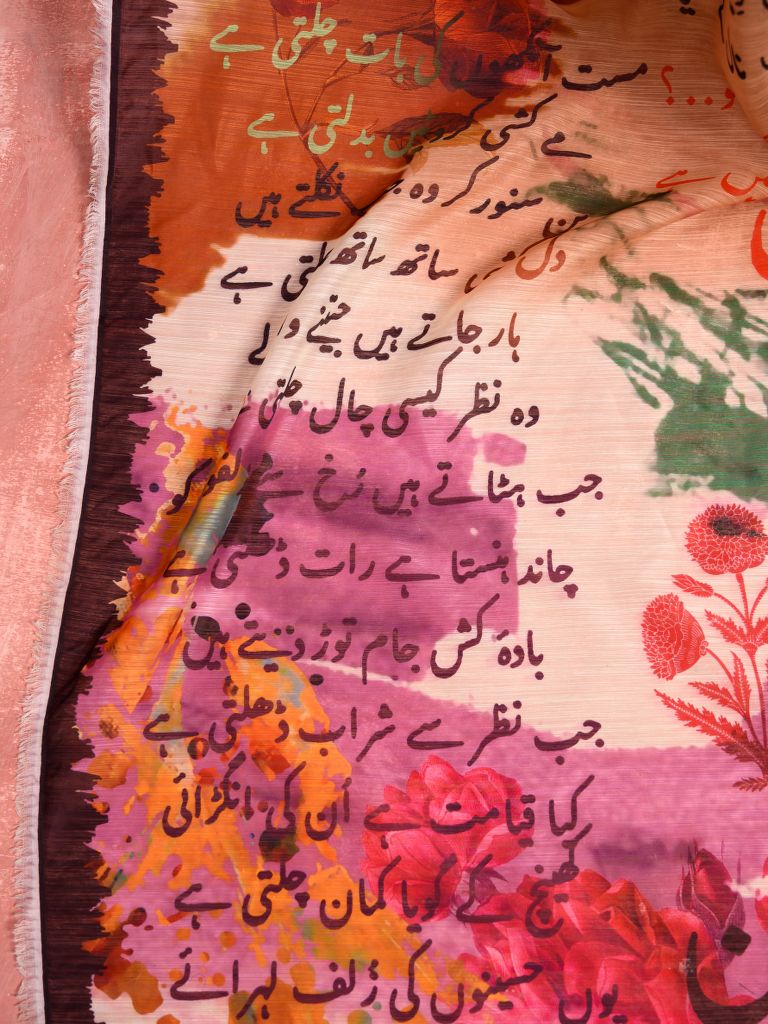 مست آنکھوں کی بات چلتی ہے
مے کشی کروٹیں بدلتی ہے
سنور کر وہ جب نکلتے ہیں
ساتھ ساتھ چلتی ہے
ہار جاتے ہیں جیتنے والے
وہ نظر کیسی چال چلتی
جب ہٹاتے ہیں رخ سے زلفوں کو
چاند ہنستا ہے رات ڈھلتی ہے
بادۂ کش جام توڑ دیتے ہیں
جب نظر سے شراب ڈھلتی ہے
کیا قیامت ہے اُن کی انگڑائی
کھینچ کے گویا کمان چلتی ہے
یوں حسینوں کی زُلف لہرائے